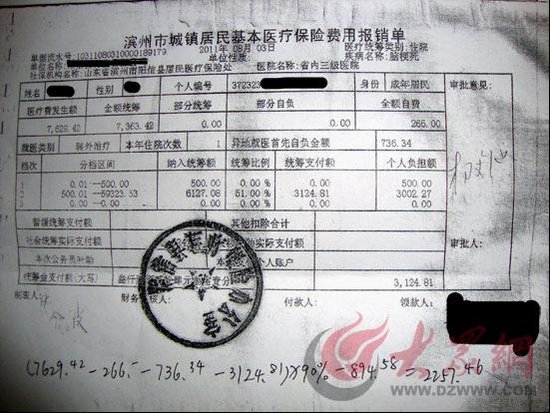 滨州市城镇居民基本医疗保险费用报销单
单据流水号:10311080310000189179 2011年 08月 03日 医疗统筹类别:住院
单位名称: 单位性质: 疾病名称:脑梗死
社保机构名称:山东省滨州市阳信县居民医疗保险处 医院名称:省内三级医院
姓名 性别 个人编号 372323 身份 成年居民 审批意见:
医疗费发生额 全额统筹 部分统筹 部分自负 全额自费
7,629.42 7,363.42 0.00 0.00 266.00
就医类别 转外治疗 本年住院次数 1 异地就医首先自负金额 736.34
档次 分档区间 纳入统筹额 统筹比例 统筹支付额 个人负担额
1 0.01--500.00 500.00 0.00 % 0.00 500.00
2 500.01--59323.53 6127.08 51.00 % 3124.81 3002.27
3 0.00--0.00 0.00 0.00 % 0.00 0.00
暂缓统筹支付额 其他扣除合计
社会统筹实际支付额 助实际支付额
本次公务员补助 个人账户
统筹金支付额(大写) 叁仟 3,124.81
审批人:
制表人: 财务 付款人: 领款人:
(7629.42-266.-736.34-3124.81)×90%-894.58=2257.46
大众網
WWW.DZWWW.COM